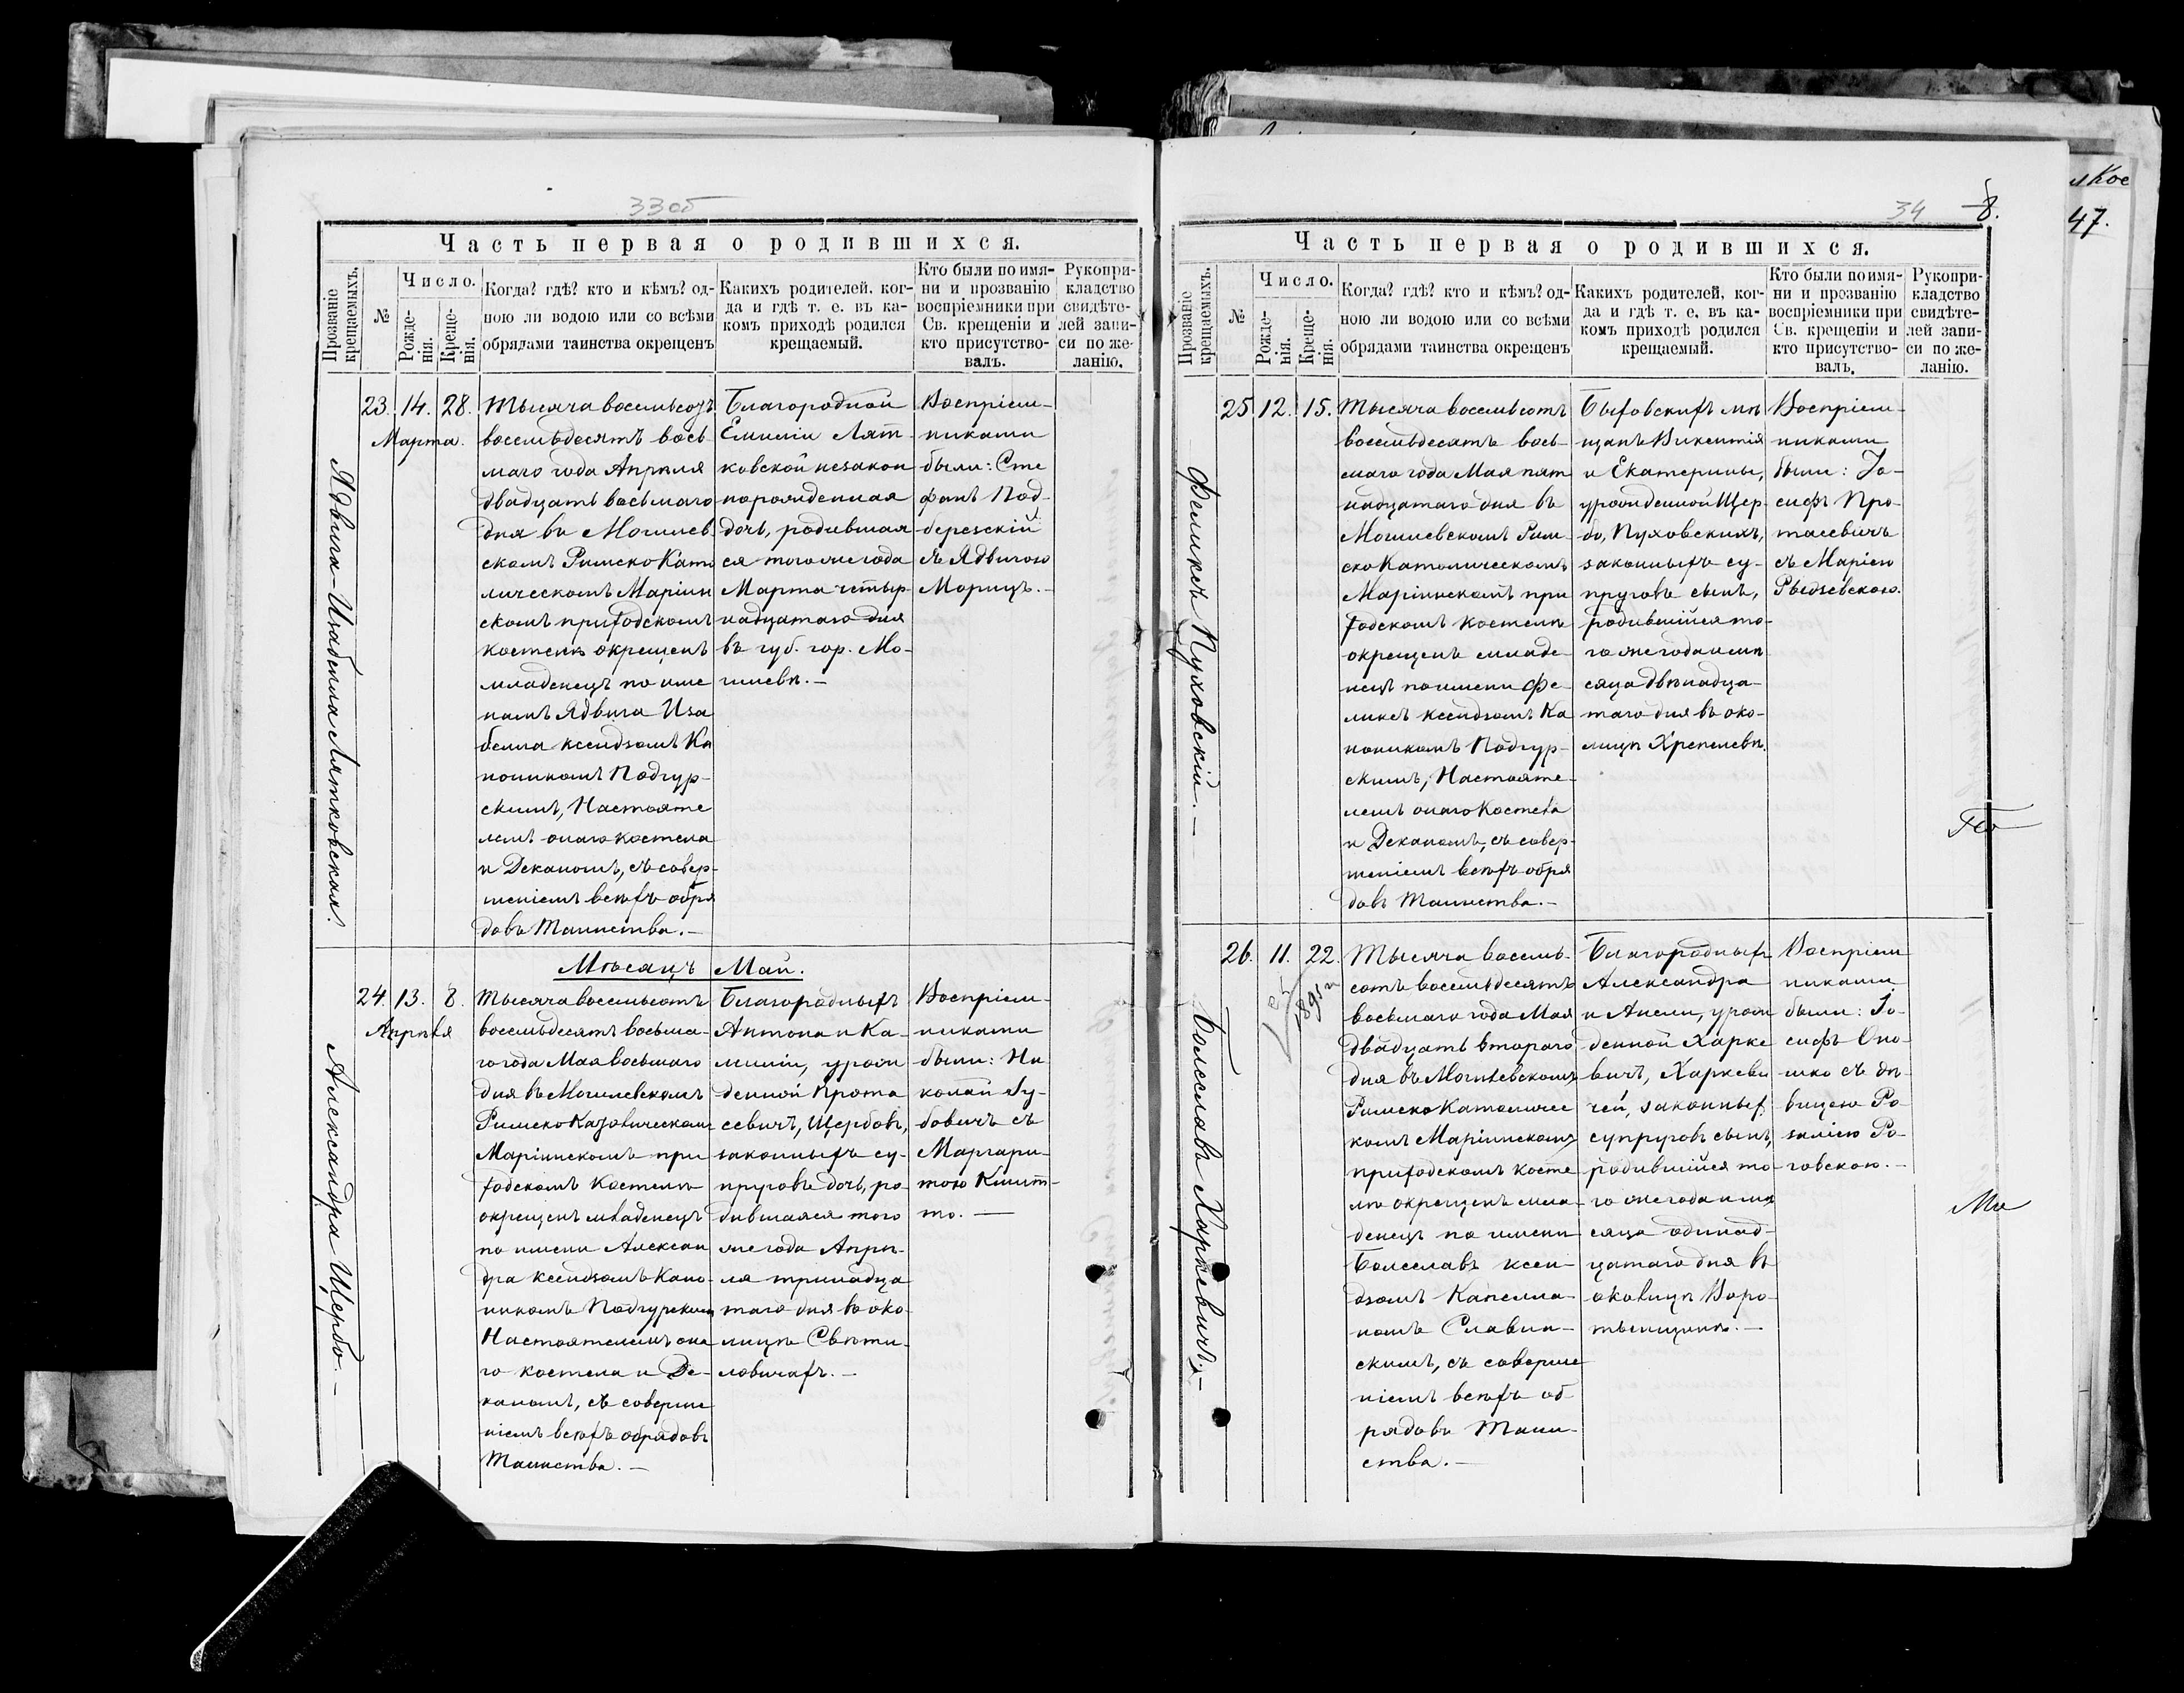 33об
Часть первая о родившихся.
Прозваніе крещаемыхъ.
№
Число.
Рожде-
нія.
Креще-
нія.
Когда? гдѣ? кто и кѣмъ? од-
ною ли водою или со всѣми
обрядами таинства окрещенъ
Какихъ родителей, ког-
да и гдѣ т. е. въ ка-
комъ приходѣ родился
крещаемый.
Кто были по имя-
ни и прозванію
воспріемники при
Св. крещеніи и
кто присутство-
валъ.
Рукопри-
кладство
свидѣте-
лей запи-
си по же-
ланію.
Ядвига-Изабелла Лятковская.
23. 14. 28.
Марта.
Тысяча восемьсотъ
восемьдесятъ вось
маго года Апрѣля
двадцать восьмаго
дня въ Могилев
скомъ Римско Като
лическомъ Маріин
скомъ приходскомъ
костелѣ окрещенъ
младенецъ по име
намъ Ядвига Иза
белла ксендзомъ Ка
ноникомъ Подгур-
скимъ, Настояте
лемъ онаго костела
и Деканомъ, съ совер-
шеніемъ всѣхъ обря
довъ Таинства.-
Благородной
Емиліи Лят-
ковской незакон
норожденная
дочь, родившая
ся того же года
Марта четыр-
надцатаго дня
въ губ. гор. Мо-
гилевѣ.-
Воспріем-
никами
были: Сте
фанъ Под-
березскій
съ Ядвигою
Морицъ.-
Мѣсяцъ Май.
Александра Щербо.-
24. 13. 8.
Апрѣля
Тысяча восемьсотъ
восемьдесятъ восьма-
го года Мая восьмаго
дня въ Могилевскомъ
Римско Католическомъ
Маріинскомъ при
ходскомъ Костелѣ
окрещенъ младенецъ
по имени Алексан
дра ксендзомъ Кано-
никомъ Подгурскимъ
Настоятелемъ она
го костела и Де-
каномъ, съ соверше
ніемъ всѣхъ обрядовъ
Таинства.-
Благородныхъ
Антона и Ка-
миліи, урож
денной Прота
севичъ, Щербовъ,
законныхъ су-
пруговъ дочь, ро-
дившаяся того
же года Апрѣ-
ля тринадца
таго дня въ око-
лицѣ Свѣти-
ловичахъ.-
Воспріем-
никами
были: Ни
колай Гу-
бовичъ съ
Маргари-
тою Кмит-
то.-
34 8.
Часть первая о родившихся.
Прозваніе крещаемыхъ.
№
Число.
Рожде-
нія.
Креще-
нія.
Когда? гдѣ? кто и кѣмъ? од-
ною ли водою или со всѣми
обрядами таинства окрещенъ
Какихъ родителей, ког-
да и гдѣ т. е. въ ка-
комъ приходѣ родился
крещаемый.
Кто были по имя-
ни и прозванію
воспріемники при
Св. крещеніи и
кто присутство-
валъ.
Рукопри-
кладство
свидѣте-
лей запи-
си по же-
ланію.
Феликсъ Пуховскій.-
25 12. 15.
Тысяча восемьсотъ
восемьдесятъ вось-
маго года Мая пят
надцатаго дня въ
Могилевскомъ Рим-
ско Католическомъ
Маріинскомъ при
ходскомъ костелѣ
окрещенъ младе-
нецъ по имени Фе-
ликсъ ксендзомъ Ка
ноникомъ Подгур-
скимъ, Настояте-
лемъ онаго Костела
и Деканомъ, съ совер-
шеніемъ всѣхъ обря
довъ Таинства.-
Быховскихъ мѣ
щанъ Викентія
и Екатерины,
урожденной Щер-
бо, Пуховскихъ,
законныхъ су-
пруговъ сынъ,
родившійся то-
го же года и мѣ
сяца двѣнадца-
таго дня въ око-
лицѣ Хрепелевѣ.
Воспріем-
никами
были: Іо-
сифъ Про-
тасевичъ
съ Маріею
Рыдзевскою.
Болеславъ Харкевичъ.-
26. 11. 22.
Тысяча восемь-
сотъ восемьдесятъ
восьмаго года Мая
двадцать втораго
дня въ Могилевскомъ
Римско Католичес
комъ Маріинскомъ
приходскомъ косте
лѣ окрещенъ мла-
денецъ по имени
Болеславъ ксен-
дзомъ Капелла-
номъ Славин-
скимъ, съ соверше
ніемъ всѣхъ об
рядовъ Таин-
ства.-
Благородныхъ
Александра
и Анели, урож
денной Харке
вичъ, Харкеви
чей, законныхъ
супруговъ сынъ,
родившійся то-
го же года и мѣ
сяца одинад-
цатаго дня въ
околицѣ Воро-
тыщинѣ.-
Воспріем
никами
были: Іо-
сифъ Оно-
шко съ дѣ-
вицею Ро-
заліею Ро-
говскою.-
47.